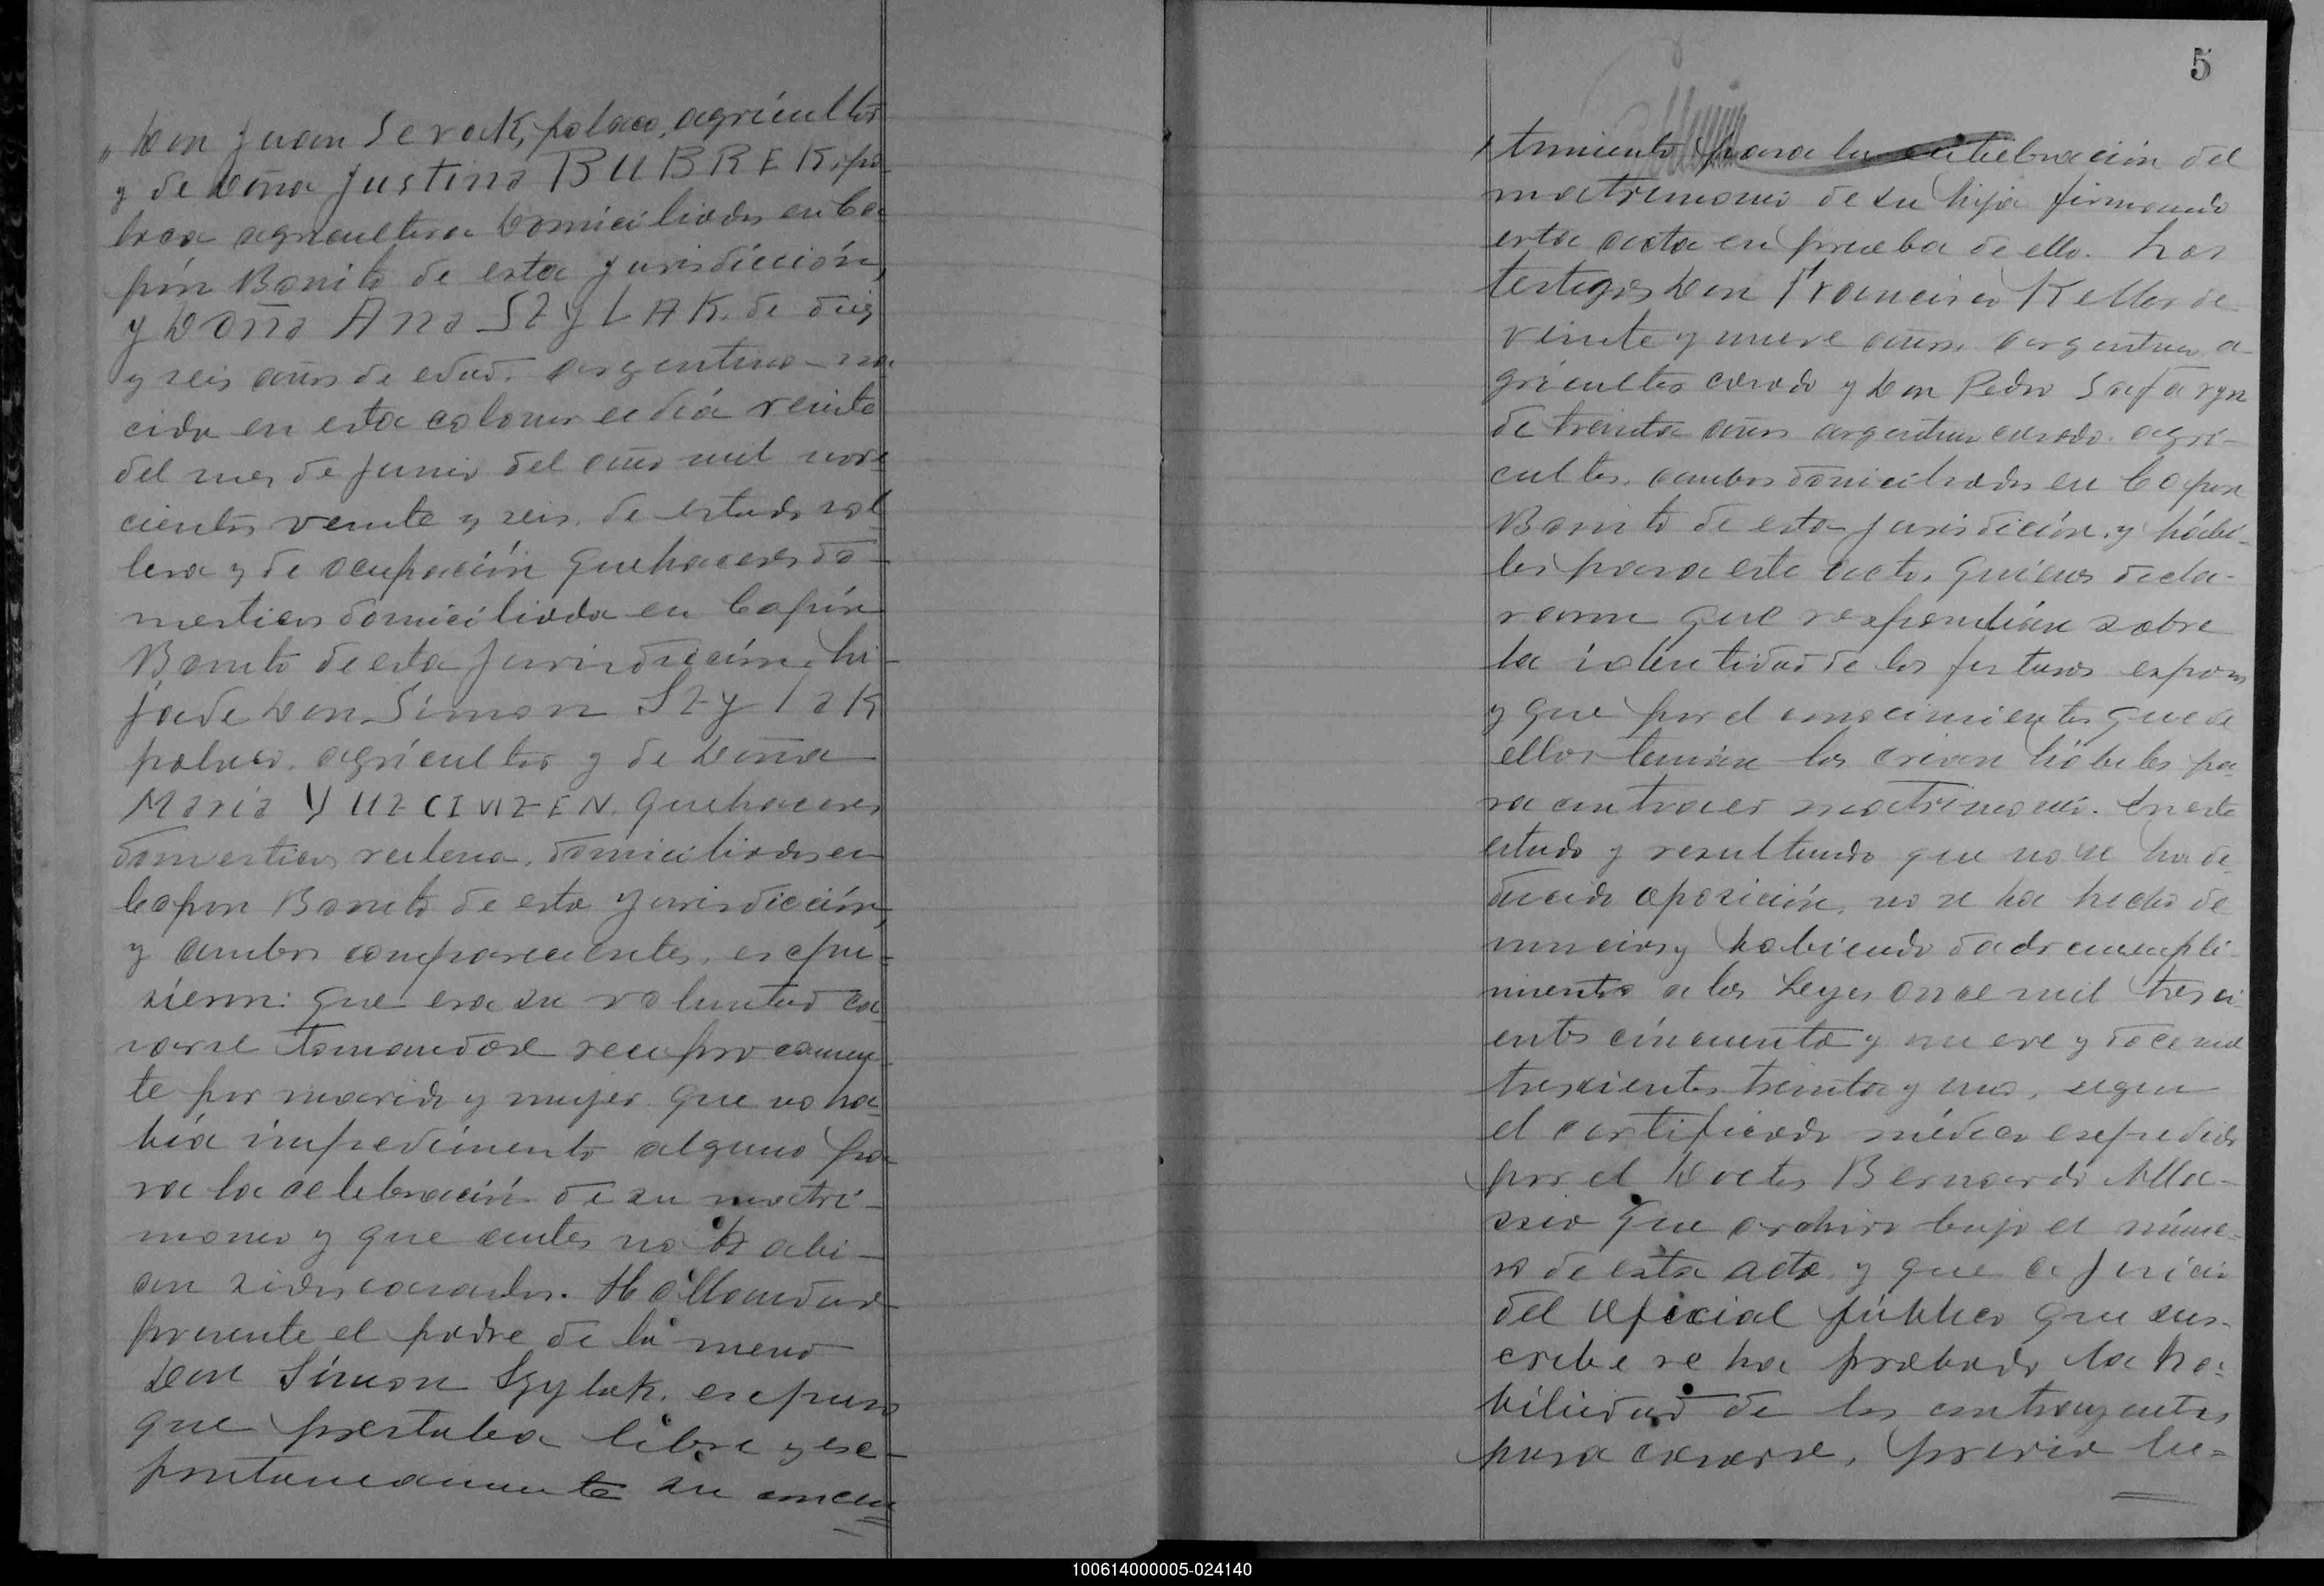 Don Juan Serak, polaco, agricultor
y de Doña Justina BUBREK, po-
laca agricultora domiciliados en Ca-
pón Bonito de esta jurisdicción,
y Doña Ana SZYLAK, de diez
y seis años de edad, argentina na-
cida en esta colonia el día veinte
del mes de junio del año mil nove
cientos veinte y seis, de estado sol-
tera y de ocupación quehaceres do-
mesticos domiciliada en Capón
Bonito de esta jurisdicción, hi-
ja de Don Simon Szylak
polaco, agricultor y de Doña
Maria quehaceres
domesticos, domiciliados en
Capon Bonito de esta jurisdicción,
y ambos comparecientes, expu-
sieron: que era su voluntad ca-
sarse tomandose reciprocamen-
te por marido y mujer que no ha-
bía impedimento alguno pa-
ra la celebración de su matri-
monio y que antes no habi-
an sidos casados. Hallandose
presente el padre de la menor
Don Simon Szylak, expuso
que prestaba libre y es-
pontaneamente su consen
5
timiento para la celebración del
matrimonio de su hija firmando
esta acta en prueba de ello. Los
testigos Don Francisco Keller de
veinte y nueve años, argentino, a-
gricultor casado y Don Pedro Safaryn
de treinta años argentino casado, agri-
cultor, ambos domiciliados en Capon
Bonito de esta jurisdicción, y hábi-
les para este acto, quienes decla-
raron que respondían sobre
la identidad de los futuros esposos
y que por el conocimiento que de
ellos tenían los creían hábiles pa-
ra contraer matrimonio. En este
estado y resultando que no se ha de-
ducido oposición, no se ha hecho de
nuncias y habiendo dado cumpli-
miento a las Leyes once mil tresci-
entos cincuenta y nueve y doce mil
trescientos treinta y uno, segun
el certificado médico expedido
por el Doctor Bernardo
que archivo bajo el núme-
ro de esta acta y que a juicio
del oficial público que sus-
cribe se ha probado la ha-
bilidad de los contrayentes
para casarse, previa lec=
100614000005-024140